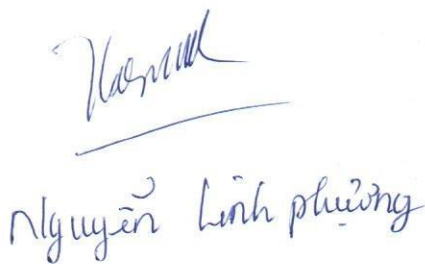 Nguyễn Linh Phượng